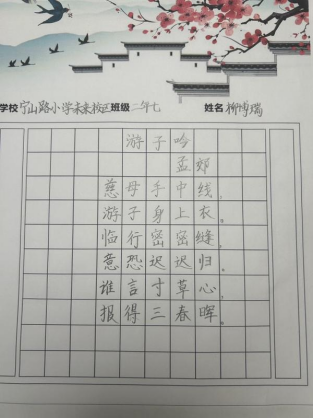 学校宁山路小学未来校区班级二年七 姓名柳博瑞
游子吟
孟郊
慈母手中线,
游子身上衣。
临行密密缝,
意恐迟迟归。
谁言寸草心,
报得三春晖。